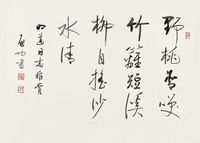 野桃含咲
竹籬短溪
柳自搖沙
水清
同志雅賞
啟功書